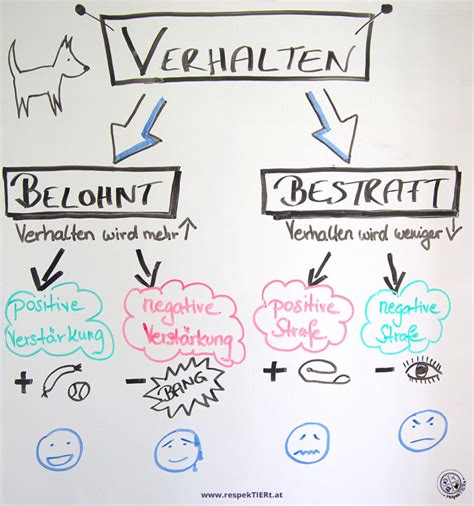 VERHALTEN
BELOHNT
BESTRAFT
Verhalten wird mehr ↑
Verhalten wird weniger ↓
positive
Verstärkung
negative
Verstärkung
positive
Strafe
negative
Strafe
+
- BANG
+
-
www.respekTIERt.at